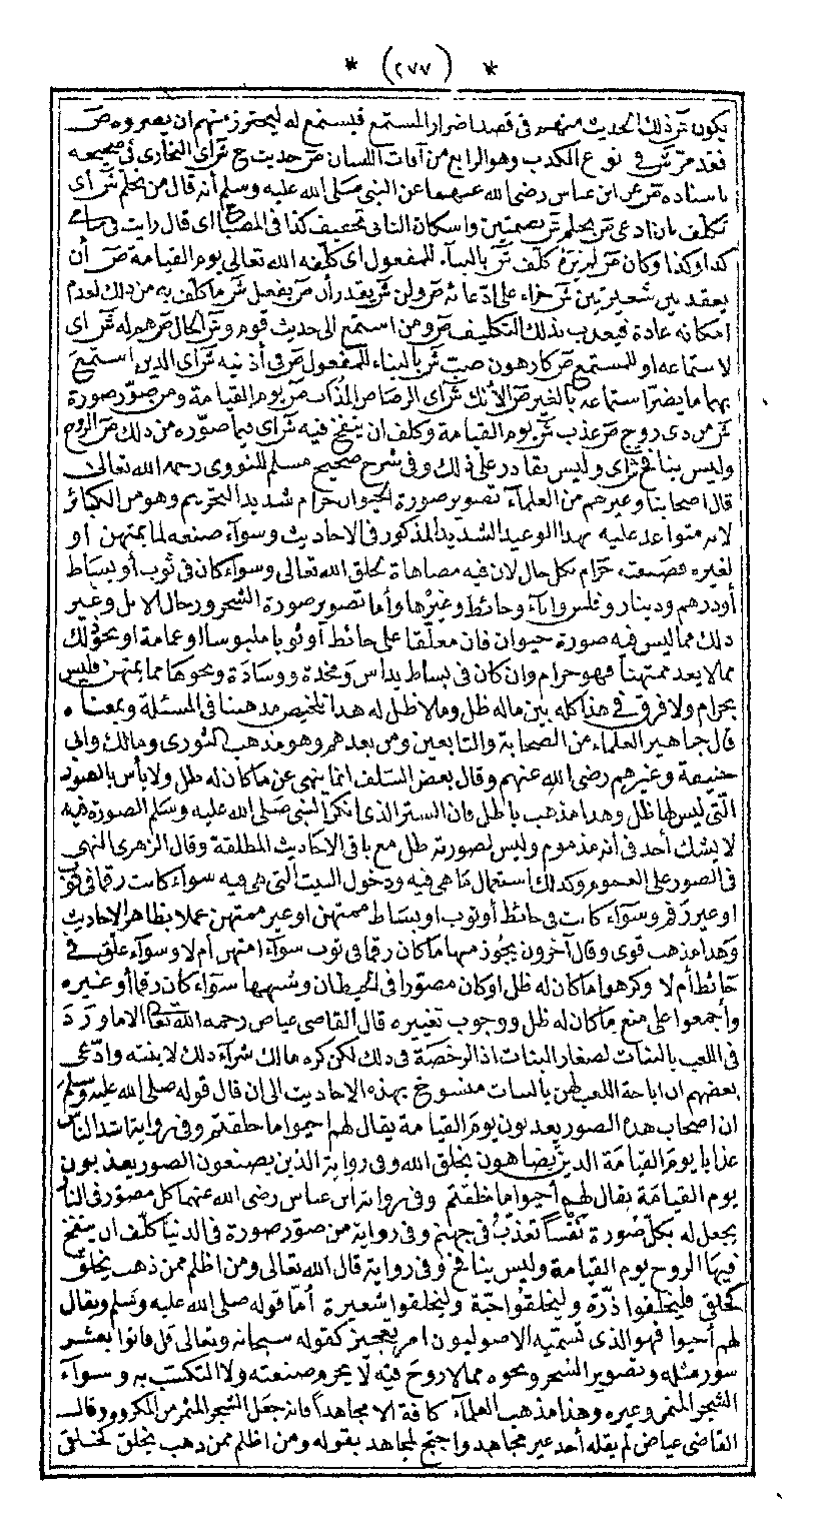 * (٢٧٧) *
يكون ذلك الحديث منهم في قصد اضرار المستمع فيستمع له ليحترز منهم ان يضروه ص
فقد مر ش في نوع الكذب وهو الرابع من آفات اللسان ص حديث خ ش أى البخارى في صحيحه
باسناده ص عن ابن عباس رضى الله عنهما عن النبي صلى الله عليه وسلم أنه قال من تحلم ش أى
تكلف بان ادعى ص بحلم ش بضمتين واسكان الثانى تخفيف كذا في المصباح اى قال رايت في منامى
كذا وكذا وكان ص لم يره كلف ش بالبناء للمفعول اى كلفه الله تعالى يوم القيامة ص أن
يعقد بين شعيرتين ش جزاء على ادعائه ص ولن ش يقدر أن ص يفعل ش ما كلف به من ذلك لعدم
امكانه عادة فيعذب بذلك التكليف ص ومن استمع الى حديث قوم و ش الحال ص هم له ش اى
لاستماعه او للمستمع ص كارهون صب ش بالبناء للمفعول ص في أذنيه ش أى الذين استمع
بهما ما يضر استماعه بالغير ص الآنك ش أى الرصاص المذاب ص يوم القيامة ومن صور صورة
ش من ذى روح ص عذب ش يوم القيامة وكلف ان ينفخ فيه ش أى فيما صوره من ذلك ص الروح
وليس بنافخ ش أى وليس بقادر على ذلك وفي شرح صحيح مسلم للنووى رحمه الله تعالى
قال اصحابنا وغيرهم من العلماء تصوير صورة الحيوان حرام شديد التحريم وهو من الكبائر
لانه متوعد عليه بهذا الوعيد الشديد المذكور في الاحاديث وسوآء صنعه لما يمتهن او
لغيره فصنعته حرام بكل حال لان فيه مضاهاة لخلق الله تعالى وسواء كان في ثوب أو بساط
أو درهم ودينار وفلس واناء وحائط وغيرها وأما تصوير صورة الشجر ورحال الابل وغير
ذلك مما ليس فيه صورة حيوان فان معلقا على حائط أو ثوبا ملبوسا او عمامة او نحو ذلك
مما لا يعد ممتهنا فهو حرام وان كان في بساط يداس ومخدة ووسادة ونحوها مما يمتهن فليس
بحرام ولا فرق في هذا كله بين ماله ظل وما لا ظل له هذا تلخيص مذهبنا في المسئلة وبمعناه
قال جماهير العلماء من الصحابة والتابعين ومن بعدهم وهو مذهب الثورى ومالك وابى
حنيفة وغيرهم رضى الله عنهم وقال بعض السلف انما ينهى عن ما كان له ظل ولا بأس بالصور
التى ليس لها ظل وهذا مذهب باطل فان الستر الذى انكر النبى صلى الله عليه وسلم الصورة فيه
لا يشك أحد في أنه مذموم وليس لصورته ظل مع باقى الاحاديث المطلقة وقال الزهرى النهى
في الصور على العموم وكذلك استعمال ما هى فيه ودخول البيت التى هى فيه سواء كانت رقما في ثوب
او غير رقم وسوآء كانت في حائط أو ثوب او بساط ممتهن او غير ممتهن عملا بظاهر الاحاديث
وهذا مذهب قوى وقال آخرون يجوز منها ما كان رقما في ثوب سوآء امتهن أم لا وسوآء علق في
حائط أم لا وكرهوا ما كان له ظل او كان مصورا في الحيطان وشبهها سوآء كان رقما أو غيره
وأجمعوا على منع ما كان له ظل ووجوب تغييره قال القاضى عياض رحمه الله تعالى الا ما ورد
في اللعب بالبنات لصغار البنات اذ الرخصة في ذلك لكن كره مالك شرآء ذلك لابنته وادعى
بعضهم ان اباحة اللعب لهن بالبنات منسوخ بهذه الاحاديث الى ان قال قوله صلى الله عليه وسلم
ان اصحاب هذه الصور يعذبون يوم القيامة يقال لهم احيوا ما خلقتم وفي رواية اشد الناس
عذابا يوم القيامة الذين يضاهون بخلق الله وفي رواية الذين يصنعون الصور يعذبون
يوم القيامة يقال لهم أحيوا ما خلقتم وفي رواية ابن عباس رضى الله عنهما كل مصور في النار
يجعل له بكل صورة نفسا تعذب في جهنم وفي رواية من صور صورة في الدنيا كلف ان ينفخ
فيها الروح يوم القيامة وليس بنافخ وفي رواية قال الله تعالى ومن اظلم ممن ذهب يخلق
كخلقى فليخلقوا ذرة وليخلقوا حبة وليخلقوا شعيرة أما قوله صلى الله عليه وسلم ويقال
لهم أحيوا فهو الذى تسميه الاصوليون امر تعجيز كقوله سبحانه وتعالى قل فاتوا بعشر
سور مثله وتصوير الشجر ونحوه مما لا روح فيه لا يحرم صنعته ولا التكسب به وسوآء
الشجر المثمر وغيره وهذا مذهب العلمآء كافة الا مجاهدا فانه جعل الشجر المثمر من المكروه وقال
القاضى عياض لم يقله أحد غير مجاهد واحتج لمجاهد بقوله ومن اظلم ممن ذهب يخلق كخلقى